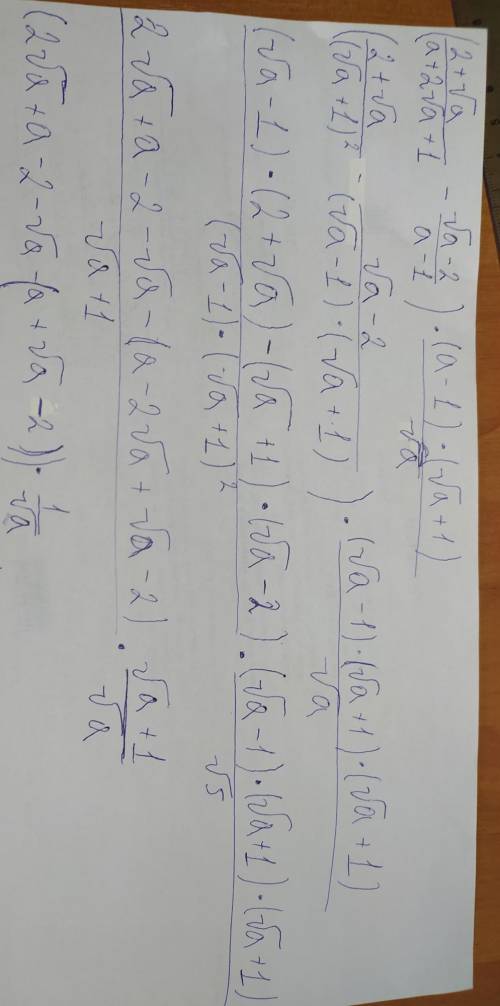 (\frac{2+√a}{a+2√a+1} - \frac{√a-2}{a-1}) · \frac{(a-1)·(√a+1)}{√a}
(\frac{2+√a}{(√a+1)^2} - \frac{√a-2}{(√a-1)·(√a+1)}) · \frac{(√a-1)·(√a+1)·(√a+1)}{√a}
\frac{(√a-1)·(2+√a)-(√a+1)·(√a-2)}{(√a-1)·(√a+1)^2} · \frac{(√a-1)·(√a+1)·(√a+1)}{√5}
\frac{2√a+a-2-√a-(a-2√a+√a-2)}{√a+1} · \frac{√a+1}{√a}
(2√a+a-2-√a-(a+√a-2))·\frac{1}{√a}